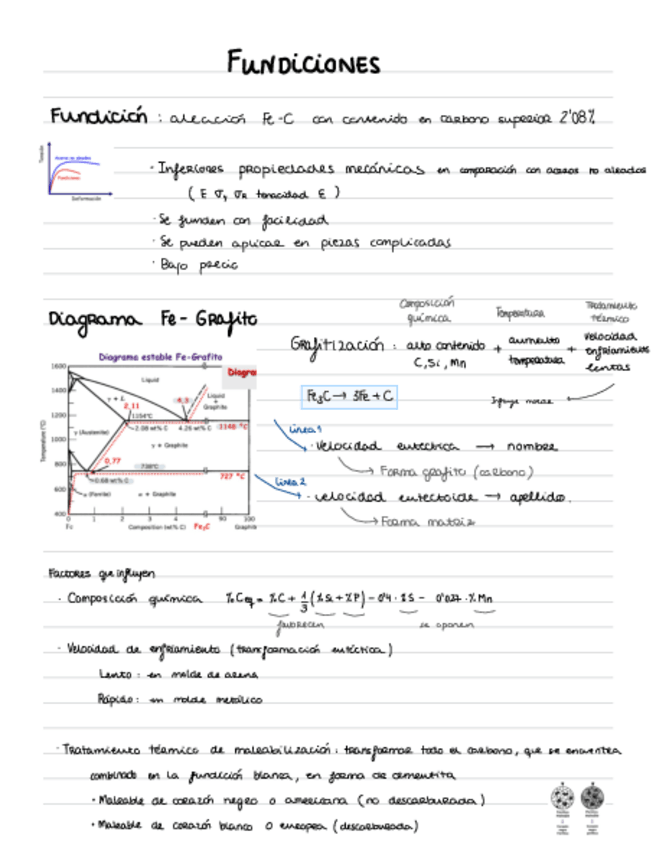 FUNDICIONES
Fundición : aleación Fe-C con contenido en carbono superior 2'08%
Tensión
Aceros no aleados
Fundiciones
Deformación
· Inferiores propiedades mecánicas en comparación con aceros no aleados
( E σy σR tenacidad ε )
· Se funden con facilidad
· Se pueden aplicar en piezas complicadas
· Bajo precio
Diagrama Fe- Grafito
Composición química
Temperatura
Tratamiento térmico
Grafitización : alto contenido C, Si, Mn + aumento temperatura + velocidad enfriamiento lentas
Fe3C → 3Fe + C
Influye molde
Diagrama estable Fe-Grafito
Diagra
1600
1400
1200
1000
800
600
400
Temperature (°C)
Liquid
Liquid + Graphite
γ + L
2,11
4,3
1154°C
1148 °C
2.08 wt% C
4.26 wt% C
γ (Austenite)
γ + Graphite
0,77
738°C
727 °C
0.68 wt% C
α (Ferrite)
α + Graphite
0 1 2 3 4 90 100
Fe
Composition (wt% C)
Fe3C
Graphite
línea 1
· Velocidad eutéctica → nombre
→ Forma grafito (carbono)
línea 2
· velocidad eutectoide → apellido.
→ Forma matriz
Factores que influyen
· Composición química %Ceq = %C + 1/3 (%Si + %P) - 0'4 · %S - 0'027 · %Mn
favorecen
se oponen
· Velocidad de enfriamiento (transformación eutéctica)
Lento : en molde de arena
Rápido : en molde metálico
· Tratamiento térmico de maleabilización : transformar todo el carbono, que se encuentra
combinado en la fundición blanca, en forma de cementita
· Maleable de corazón negro o americana (no descarburada)
· Maleable de corazón blanco o europea (descarburada)